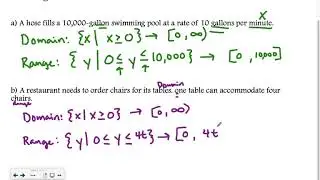 x
a) A hose fills a 10,000-gallon swimming pool at a rate of 10 gallons per minute.
Domain: {x | x ≥ 0} → [0, ∞)
Range: {y | 0 ≤ y ≤ 10,000} → [0, 10,000]
Domain
b) A restaurant needs to order chairs for its tables. one table can accommodate four
chairs.
Range
Domain: {x | x ≥ 0} → [0, ∞)
Range: {y | 0 ≤ y ≤ 4t} → [0, 4t